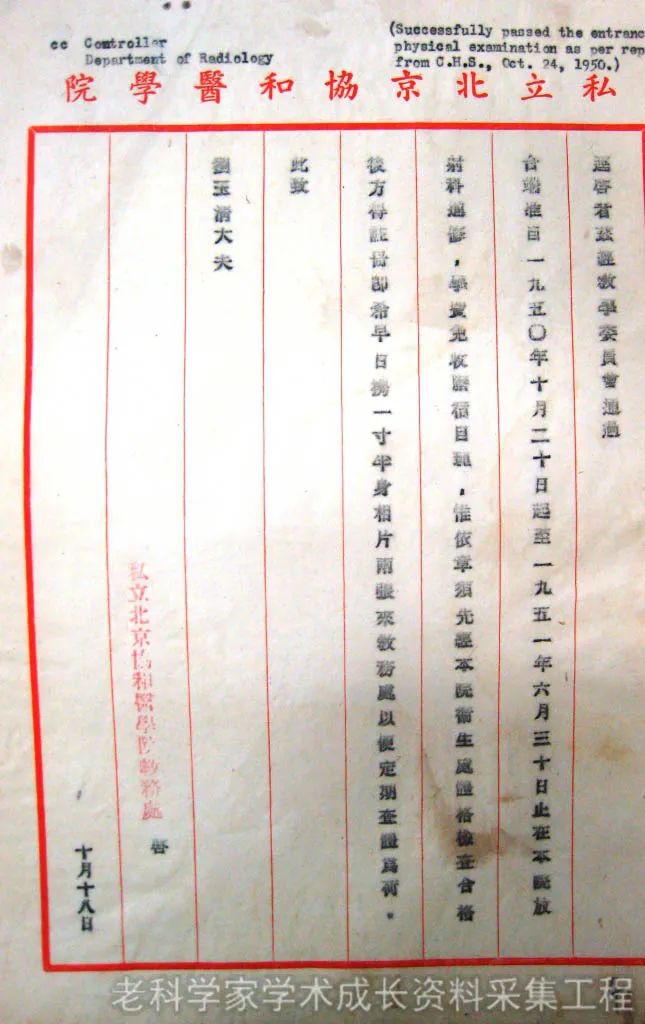 cc Controller
Department of Radiology
(Successfully passed the entranc
physical examination as per rep
from C.H.S., Oct. 24, 1950.)
私立北京協和醫學院
逕啓者茲經教學委員會通過
台端准自一九五〇年十月二十日起至一九五一年六月三十日止在本院放
射科進修，學費免收膳宿自理，惟依章須先經本院衛生處體格檢查合格
後方得註冊即希早日携一寸半身相片兩張來教務處以便定期查體爲荷。
此致
劉玉清大夫
私立北京協和醫學院教務處
啓
十月十八日
老科学家学术成长资料采集工程